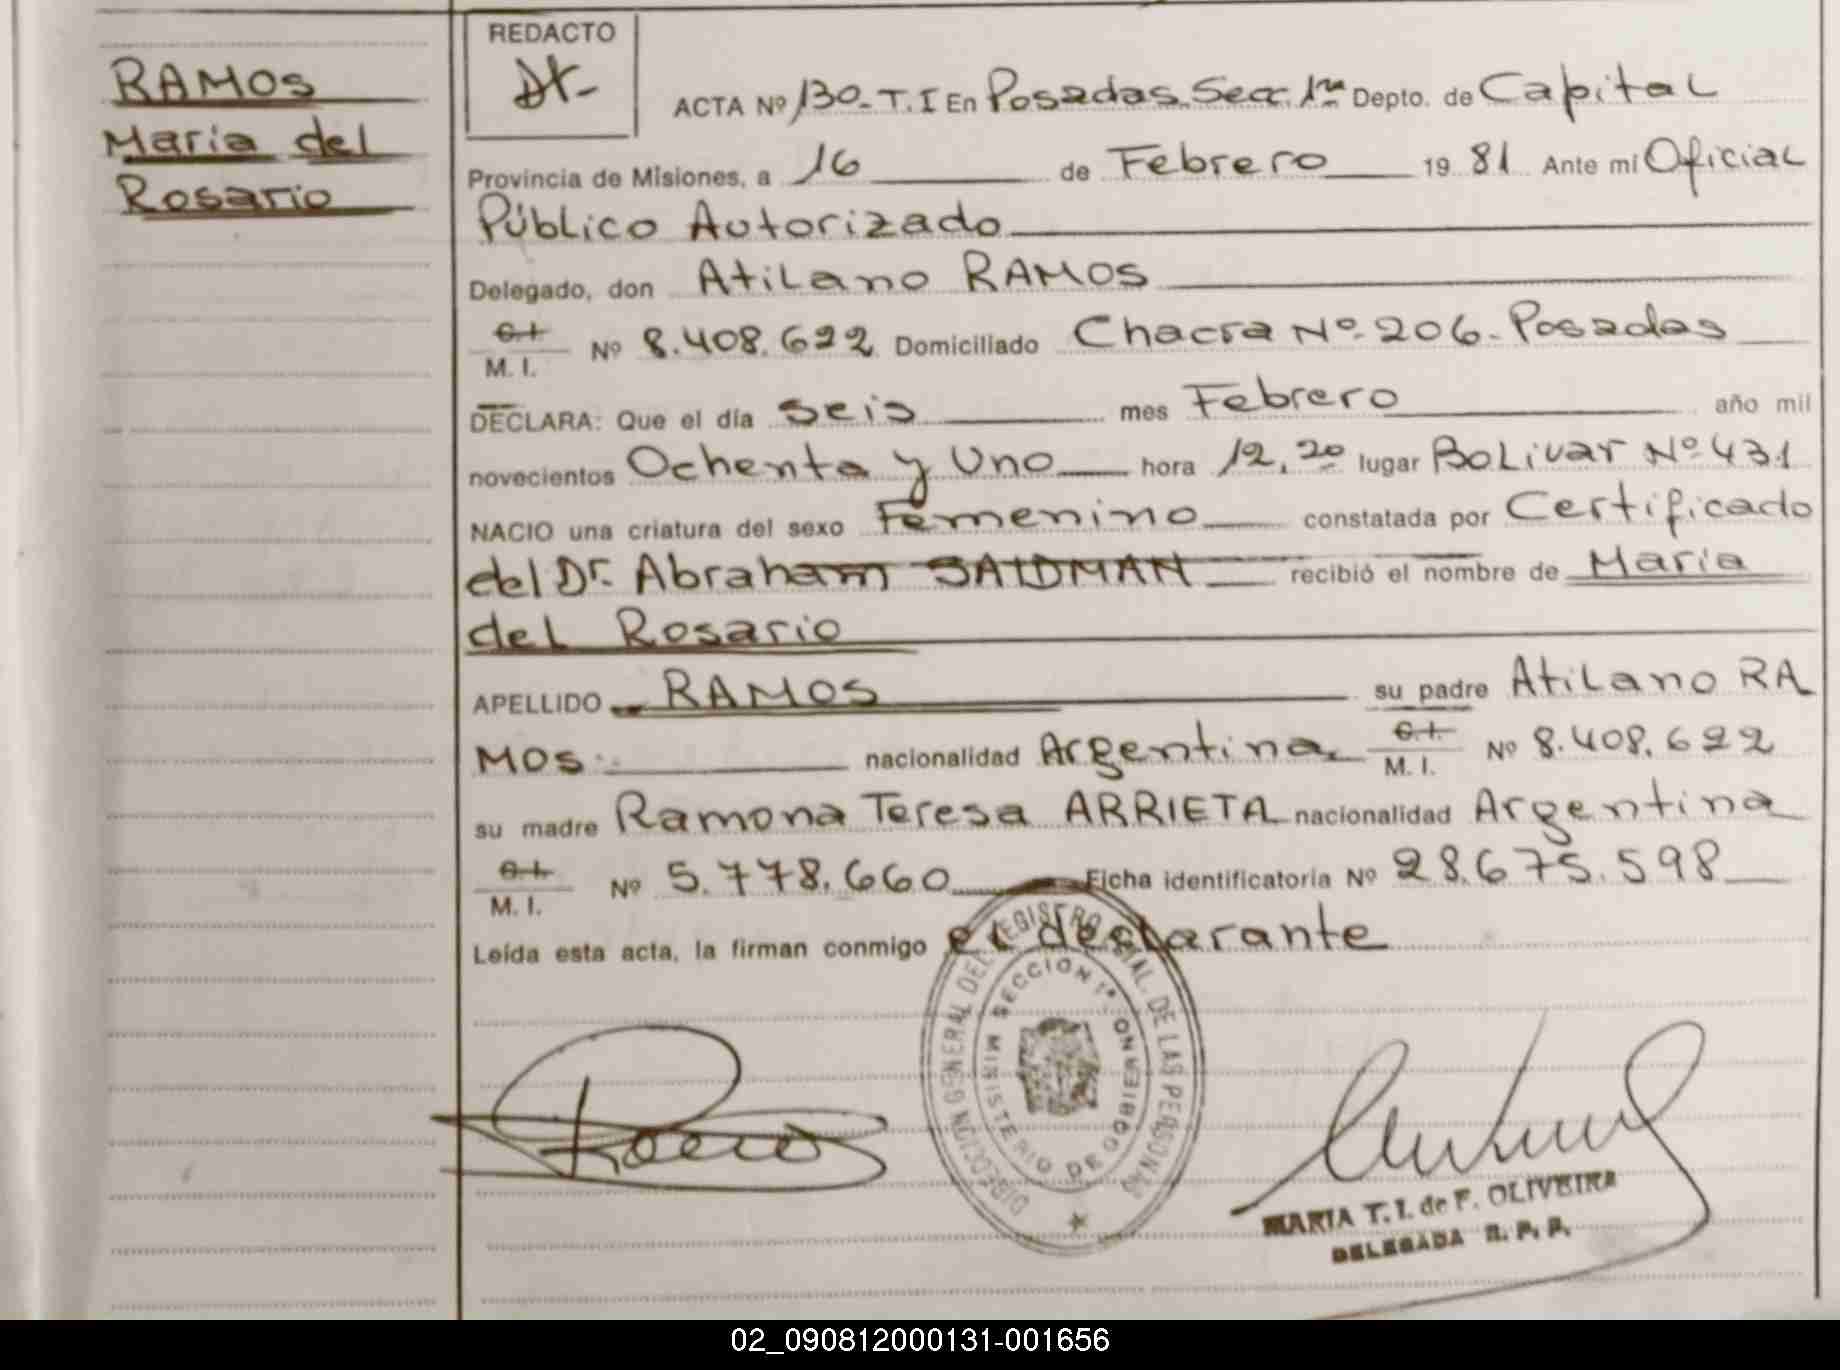 RAMOS
Maria del
Rosario
REDACTO
ACTA Nº 130-T.I En Posadas.Secc.1ra Depto. de Capital
Provincia de Misiones, a 16 de Febrero 19 81 Ante mi Oficial
Público Autorizado
Delegado, don Atilano RAMOS
C.I. M. I. Nº 8.408.622 Domiciliado Chacra Nº 206-Posadas
DECLARA: Que el día seis mes Febrero año mil
novecientos Ochenta y Uno hora 12,20 lugar Bolivar Nº 431
NACIO una criatura del sexo Femenino constatada por Certificado
del Dr. Abraham SAIDMAN recibió el nombre de Maria
del Rosario
APELLIDO RAMOS su padre Atilano RA
MOS nacionalidad Argentina C.I. M. I. Nº 8.408.622
su madre Ramona Teresa ARRIETA nacionalidad Argentina
C.I. M. I. Nº 5.778.660 Ficha identificatoria Nº 28.675.598
Leída esta acta, la firman conmigo el declarante
DIRECCION GENERAL DEL REGISTRO PCIAL. DE LAS PERSONAS
SECCION 1ª
MINISTERIO DE GOBIERNO
MARIA T. I. de F. OLIVEIRA
DELEGADA R. P. P.
02_090812000131-001656